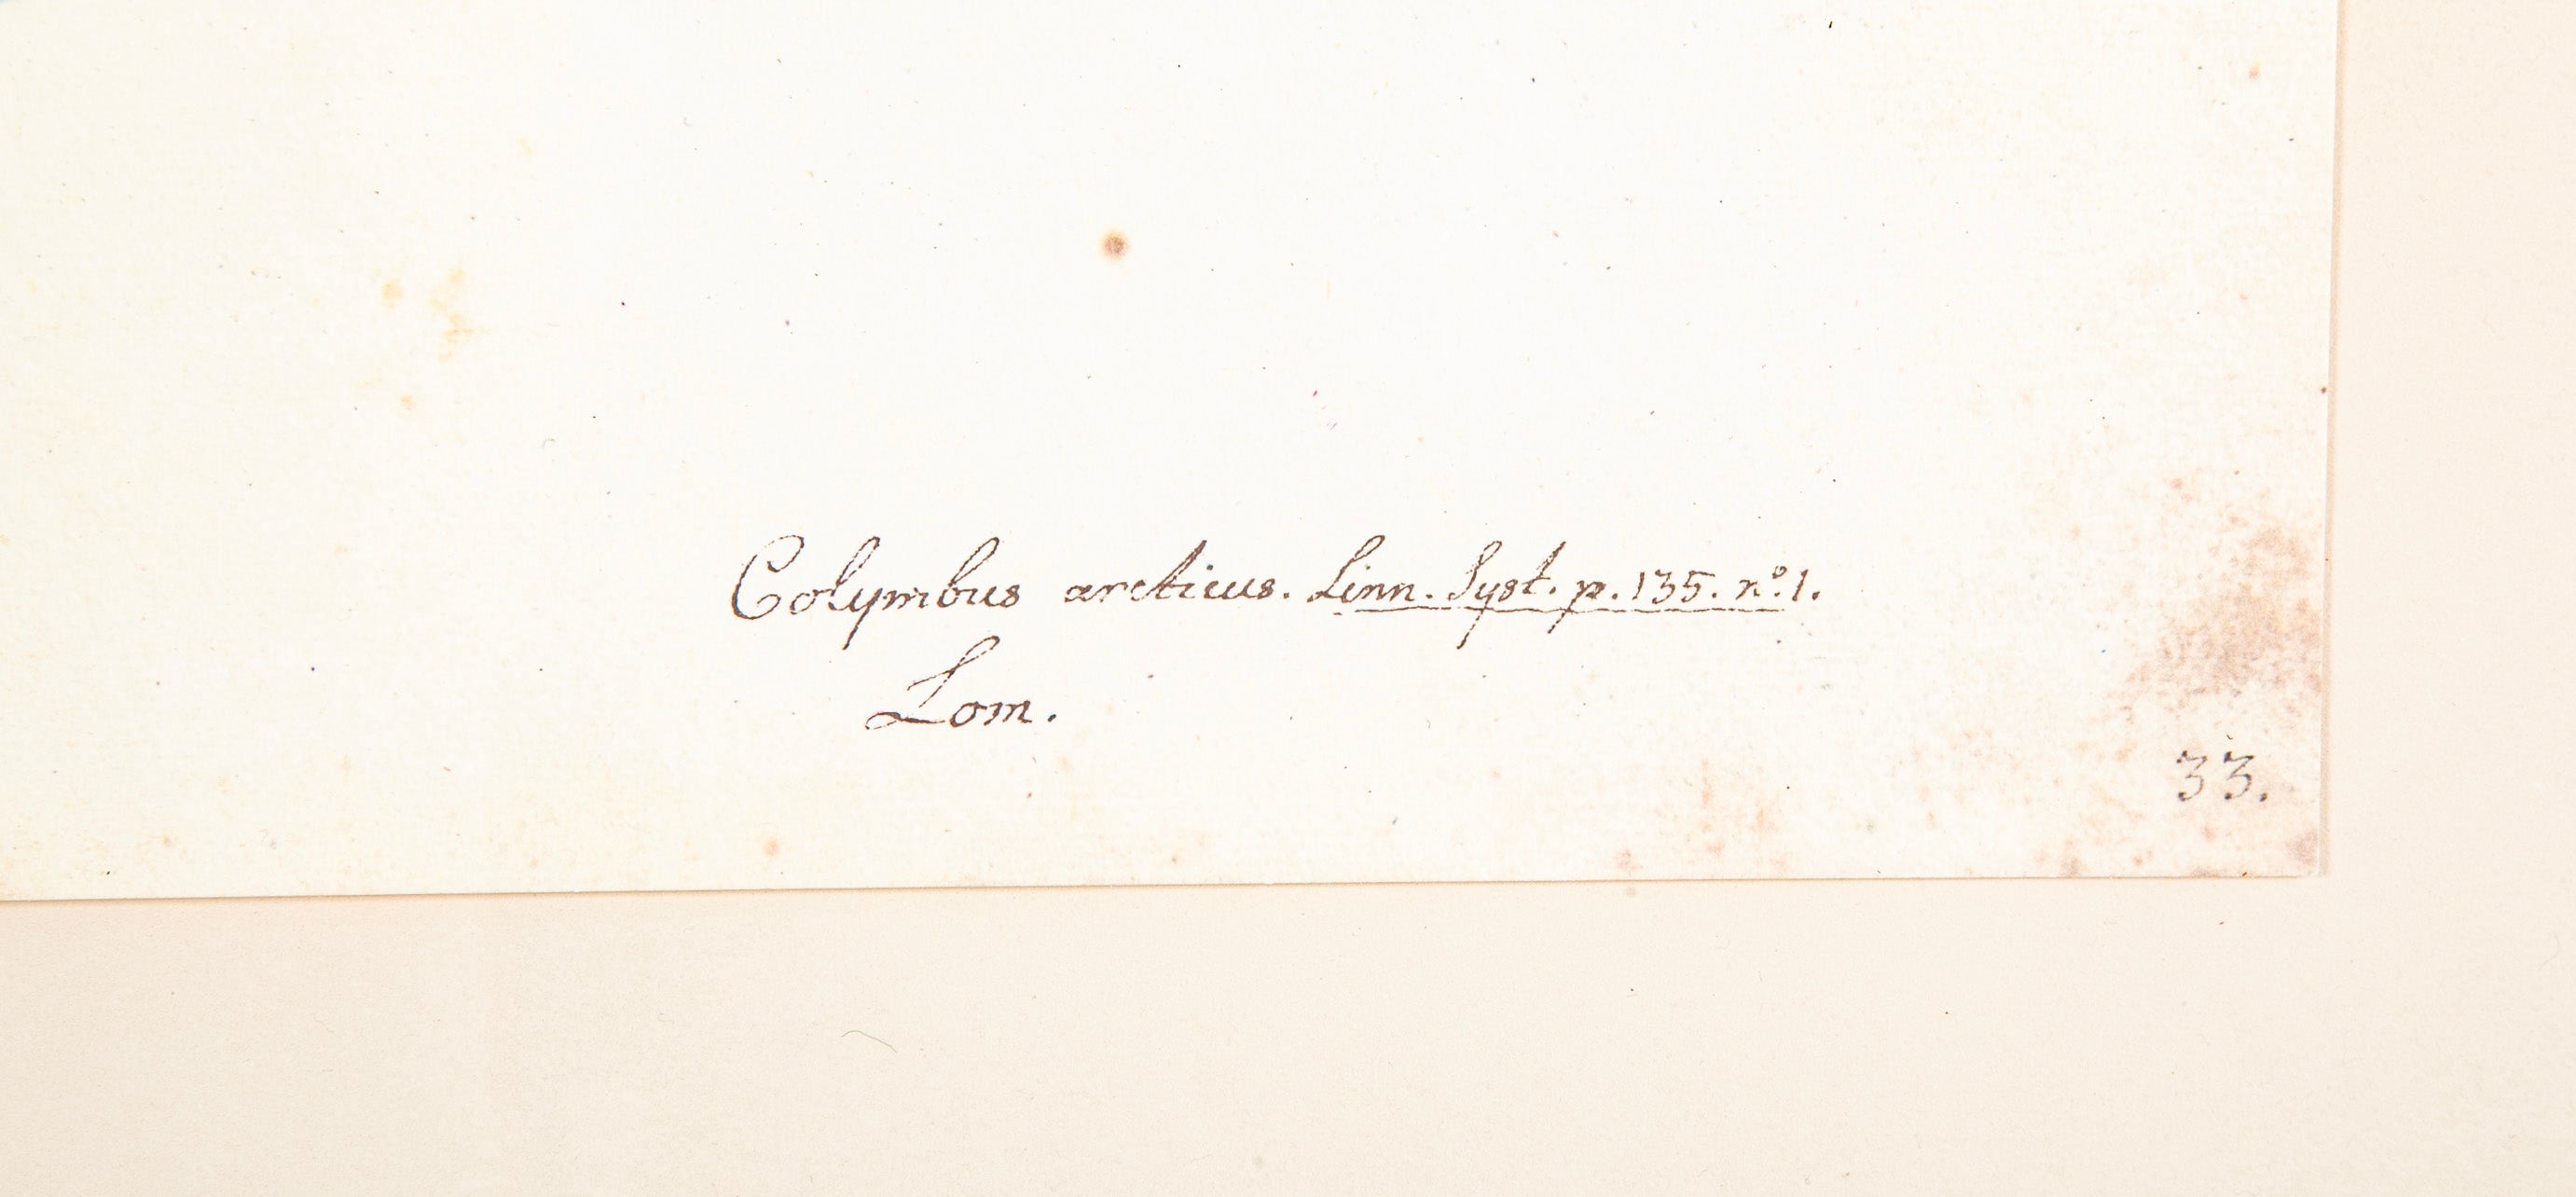 Colymbus arcticus. Linn. Syst. p. 135. nº. 1.
Lom.
33.